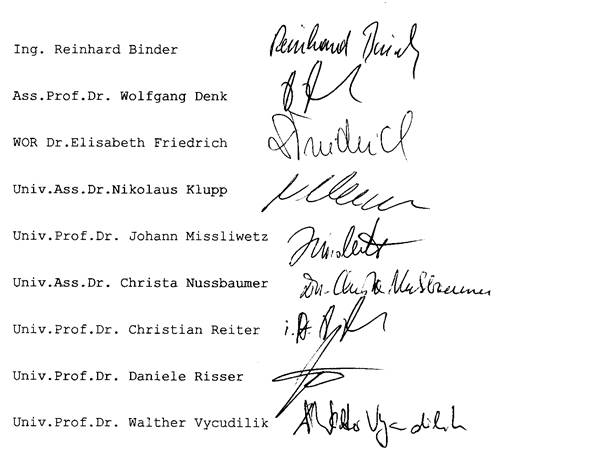 Ing. Reinhard Binder Reinhard Bind
Ass.Prof.Dr. Wolfgang Denk
WOR Dr.Elisabeth Friedrich Friedrich
Univ.Ass.Dr.Nikolaus Klupp
Univ.Prof.Dr. Johann Missliwetz
Univ.Ass.Dr. Christa Nussbaumer Dr. Christa Nussbaumer
Univ.Prof.Dr. Christian Reiter i.A.
Univ.Prof.Dr. Daniele Risser
Univ.Prof.Dr. Walther Vycudilik Vycudilik